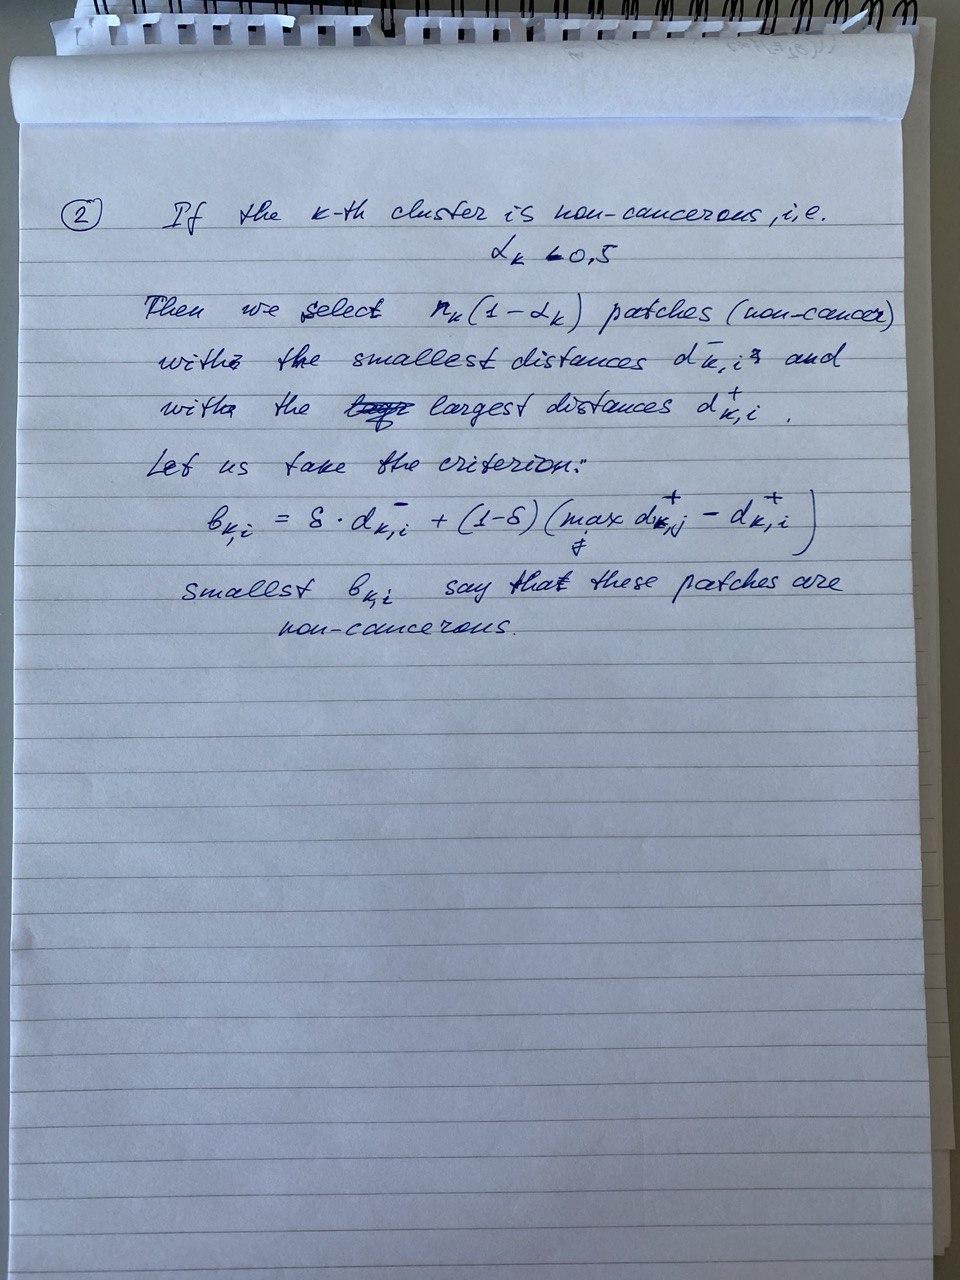 ② If the k-th cluster is non-cancerous, i.e.
α_k < 0,5
Then we select n_k(1-α_k) patches (non-cancer)
with the smallest distances d⁻_{k,i} and
with the largest distances d⁺_{k,i}.
Let us take the criterion:
b_{k,i} = δ · d⁻_{k,i} + (1-δ)(max_j d⁺_{k,j} - d⁺_{k,i})
smallest b_{k,i} say that these patches are
non-cancerous.